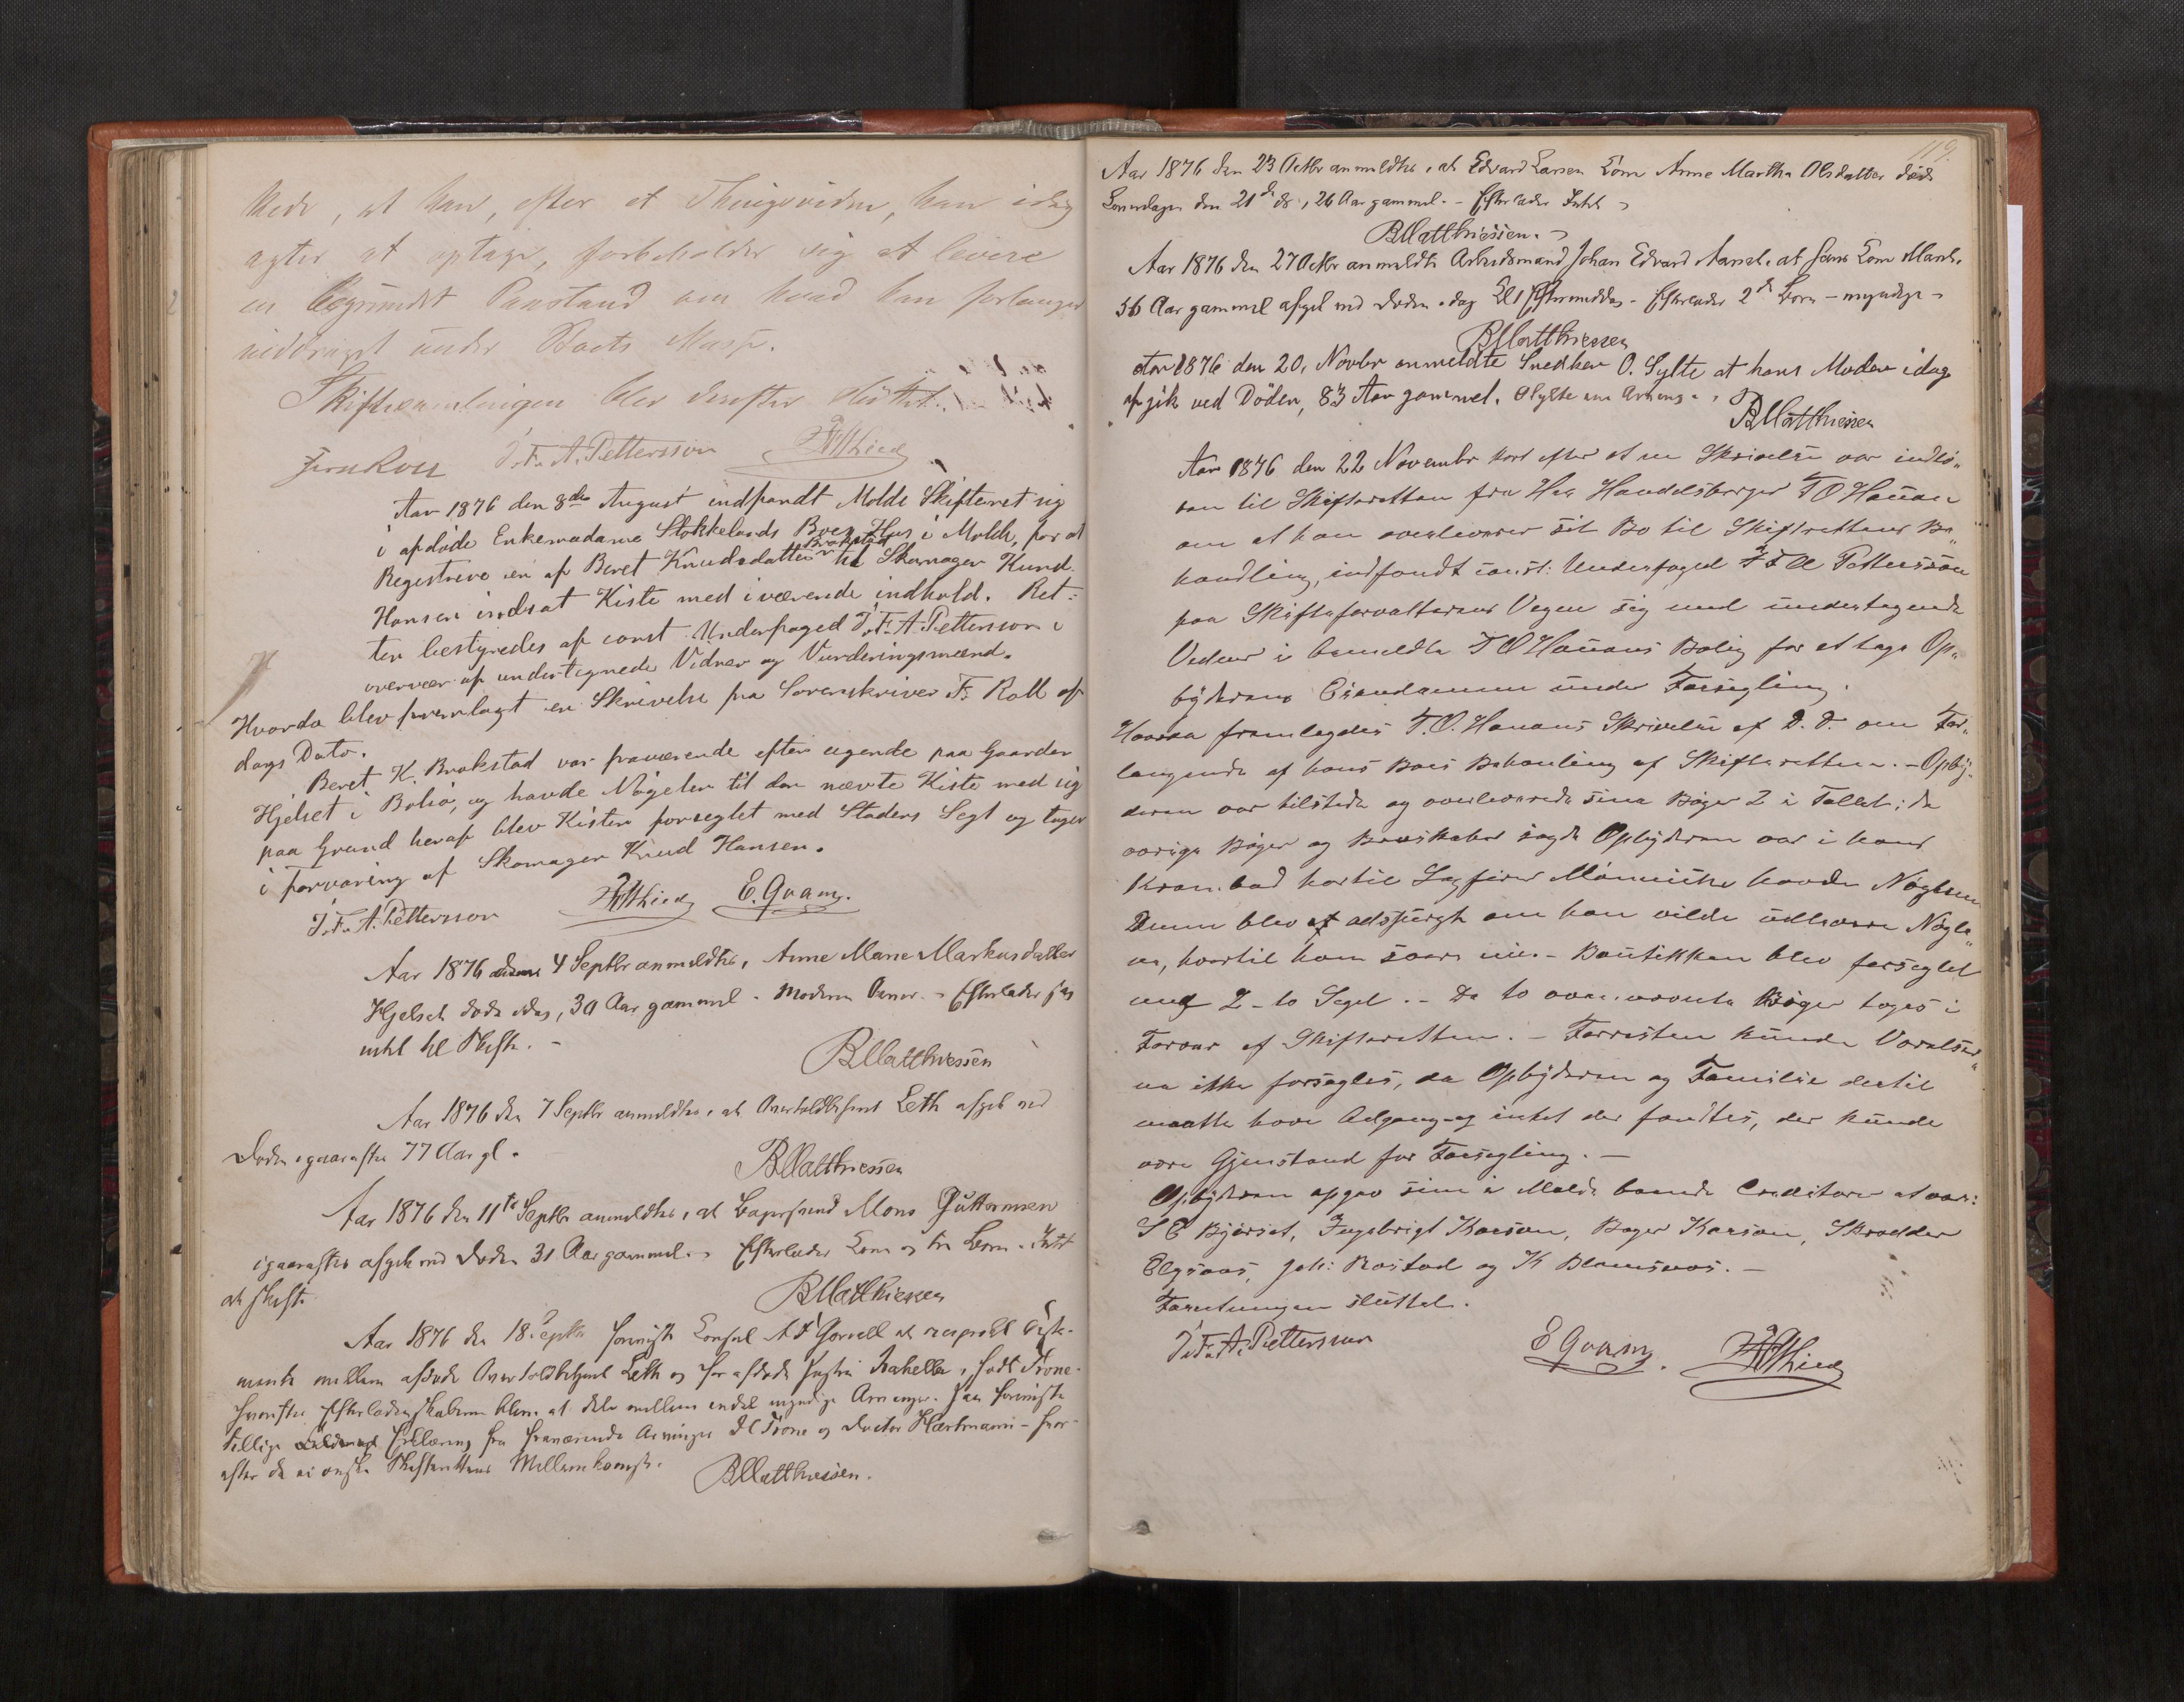 kede, at han, efter et Thingsvidne, han idag
agter at optage, forbeholder sig at levere
en begrundet Paastand om hvad han forlanger
inddraget under Boets Masse.
Skiftesamlingen blev derefter sluttet.
J.F.A. Pettersson
Aar 1876 den 8de August indfandt Molde Skifteret sig
i afdøde Enkemadame Stokkelands Boes Hus i Molde, for at
Registrere en af Beret Knudsdatter Brokstad til Skomager Knud
Hansen indsat Kiste med iværende indhold. Ret-
ten bestyredes af const. Underfoged J.F.A. Pettersson i
overvær af undertegnede Vidner og Vurderingsmænd.
Hvorda blev fremlagt en Skrivelse fra Sorenskriver F. Roll af
dags Dato.
Beret K. Brokstad var fraværende efter sigende paa Gaarden
Hjelset i Bolsø, og havde Nøgelen til den nævte Kiste med sig
paa Grund heraf blev Kisten forseglet med Stadens Segl og tages
i forvaring af Skomager Knud Hansen.
J.F.A. Pettersson E. Qvam.
Aar 1876 den 4 Septbr anmeldtes, Anne Marie Markusdatter
Hjelset døde idag, 30 Aar gammel. Efterlader sig
intet til Skifte. -
B Matthiessen
Aar 1876 den 7 Septbr anmeldtes, at Overtoldbetjent Leth afgik ved
Døden igaaraftes 77 Aar gl.
B Matthiessen
Aar 1876 den 11te Septbr anmeldtes, at Mons Guttormsen
igaaraftes afgik ved Døden 31 Aar gammel. Efterlader Kone og Børn. Intet
at skifte.
B Matthiessen
Aar 1876 den 18. Septbr Consul
mente mellem afdøde Overtoldbetjent Leth og før afdøde Hustru født Trone-
Efterladenskaberne blev at dele mellem endel myndige Arvinger.
tillige Erklæring fra fraværende Arvinger Trone og Doctor Hartmann - hvor-
efter de ei ønske Skifterettens Mellemkomst. B Matthiessen.
119.
Aar 1876 den 23 Octbr anmeldtes, at Edvard Larsen Kone Anne Martha Olsdatter døde
Løverdagen den 21de ds, 26 Aar gammel. - Efterlader Intet
B Matthiessen.
Aar 1876 den 27 Octbr anmeldte Arbeidsmand Johan Edvard at hans Kone
56 Aar gammel afgik ved Døden idag Kl 1 Eftermiddag. Efterlader 2de Børn - myndige -
B Matthiessen
Aar 1876 den 20. Novbr anmeldte Snedker O. Sylte at hans Moder idag
afgik ved Døden, 83 Aar gammel. O Sylte
B Matthiessen
Aar 1876 den 22 Novembr kort efter at en Skrivelse var indlø-
ben til Skifteretten fra Hr. Handelsborger T O Hauan
om at han overleverer sit Bo til Skifterettens Be-
handling, indfandt const. Underfoged J F A Pettersson
paa Skifteforvalterens Vegne sig med undertegnede
Vidner i bemeldte T O Hauans Bolig for at tage Op-
byderens Eiendomme under Forsegling.
Hvorda fremlagdes T.O. Hauans Skrivelse af D.D. om For-
langende af hans Boes Behanling af Skifteretten. - Opby-
deren var tilstede og overleverede sine Bøger 2 i Tallet; de
øvrige Bøger og Brevskaber sagde Opbyderen var i hans
Krambod hvortil Sagfører Münnicke havde Nøglen
Denne blev adspurgt om han vilde udlevere Nøgle-
en, hvortil han svare nei. - Boutikken blev forseglet
med 2 - to Segl. - De to ovennævnte Bøger toges i
Forvar af Skifteretten. - Forresten kunde Værelser-
ne ikke forsegles, da Opbyderen og Familie dertil
maatte have Adgang og intet der fandtes, der kunde
være Gjenstand for Forsegling. -
Opbyderen opgav sine i Molde boende Creditorer at være:
S E Bjørset, Ingebrigt Kaarsøn, Bager Karson, Skrædder
Elgsaas, Joh: Rostad og K Blomsnes. -
Forretningen sluttet.
J.F.A. Pettersson E Qvam.